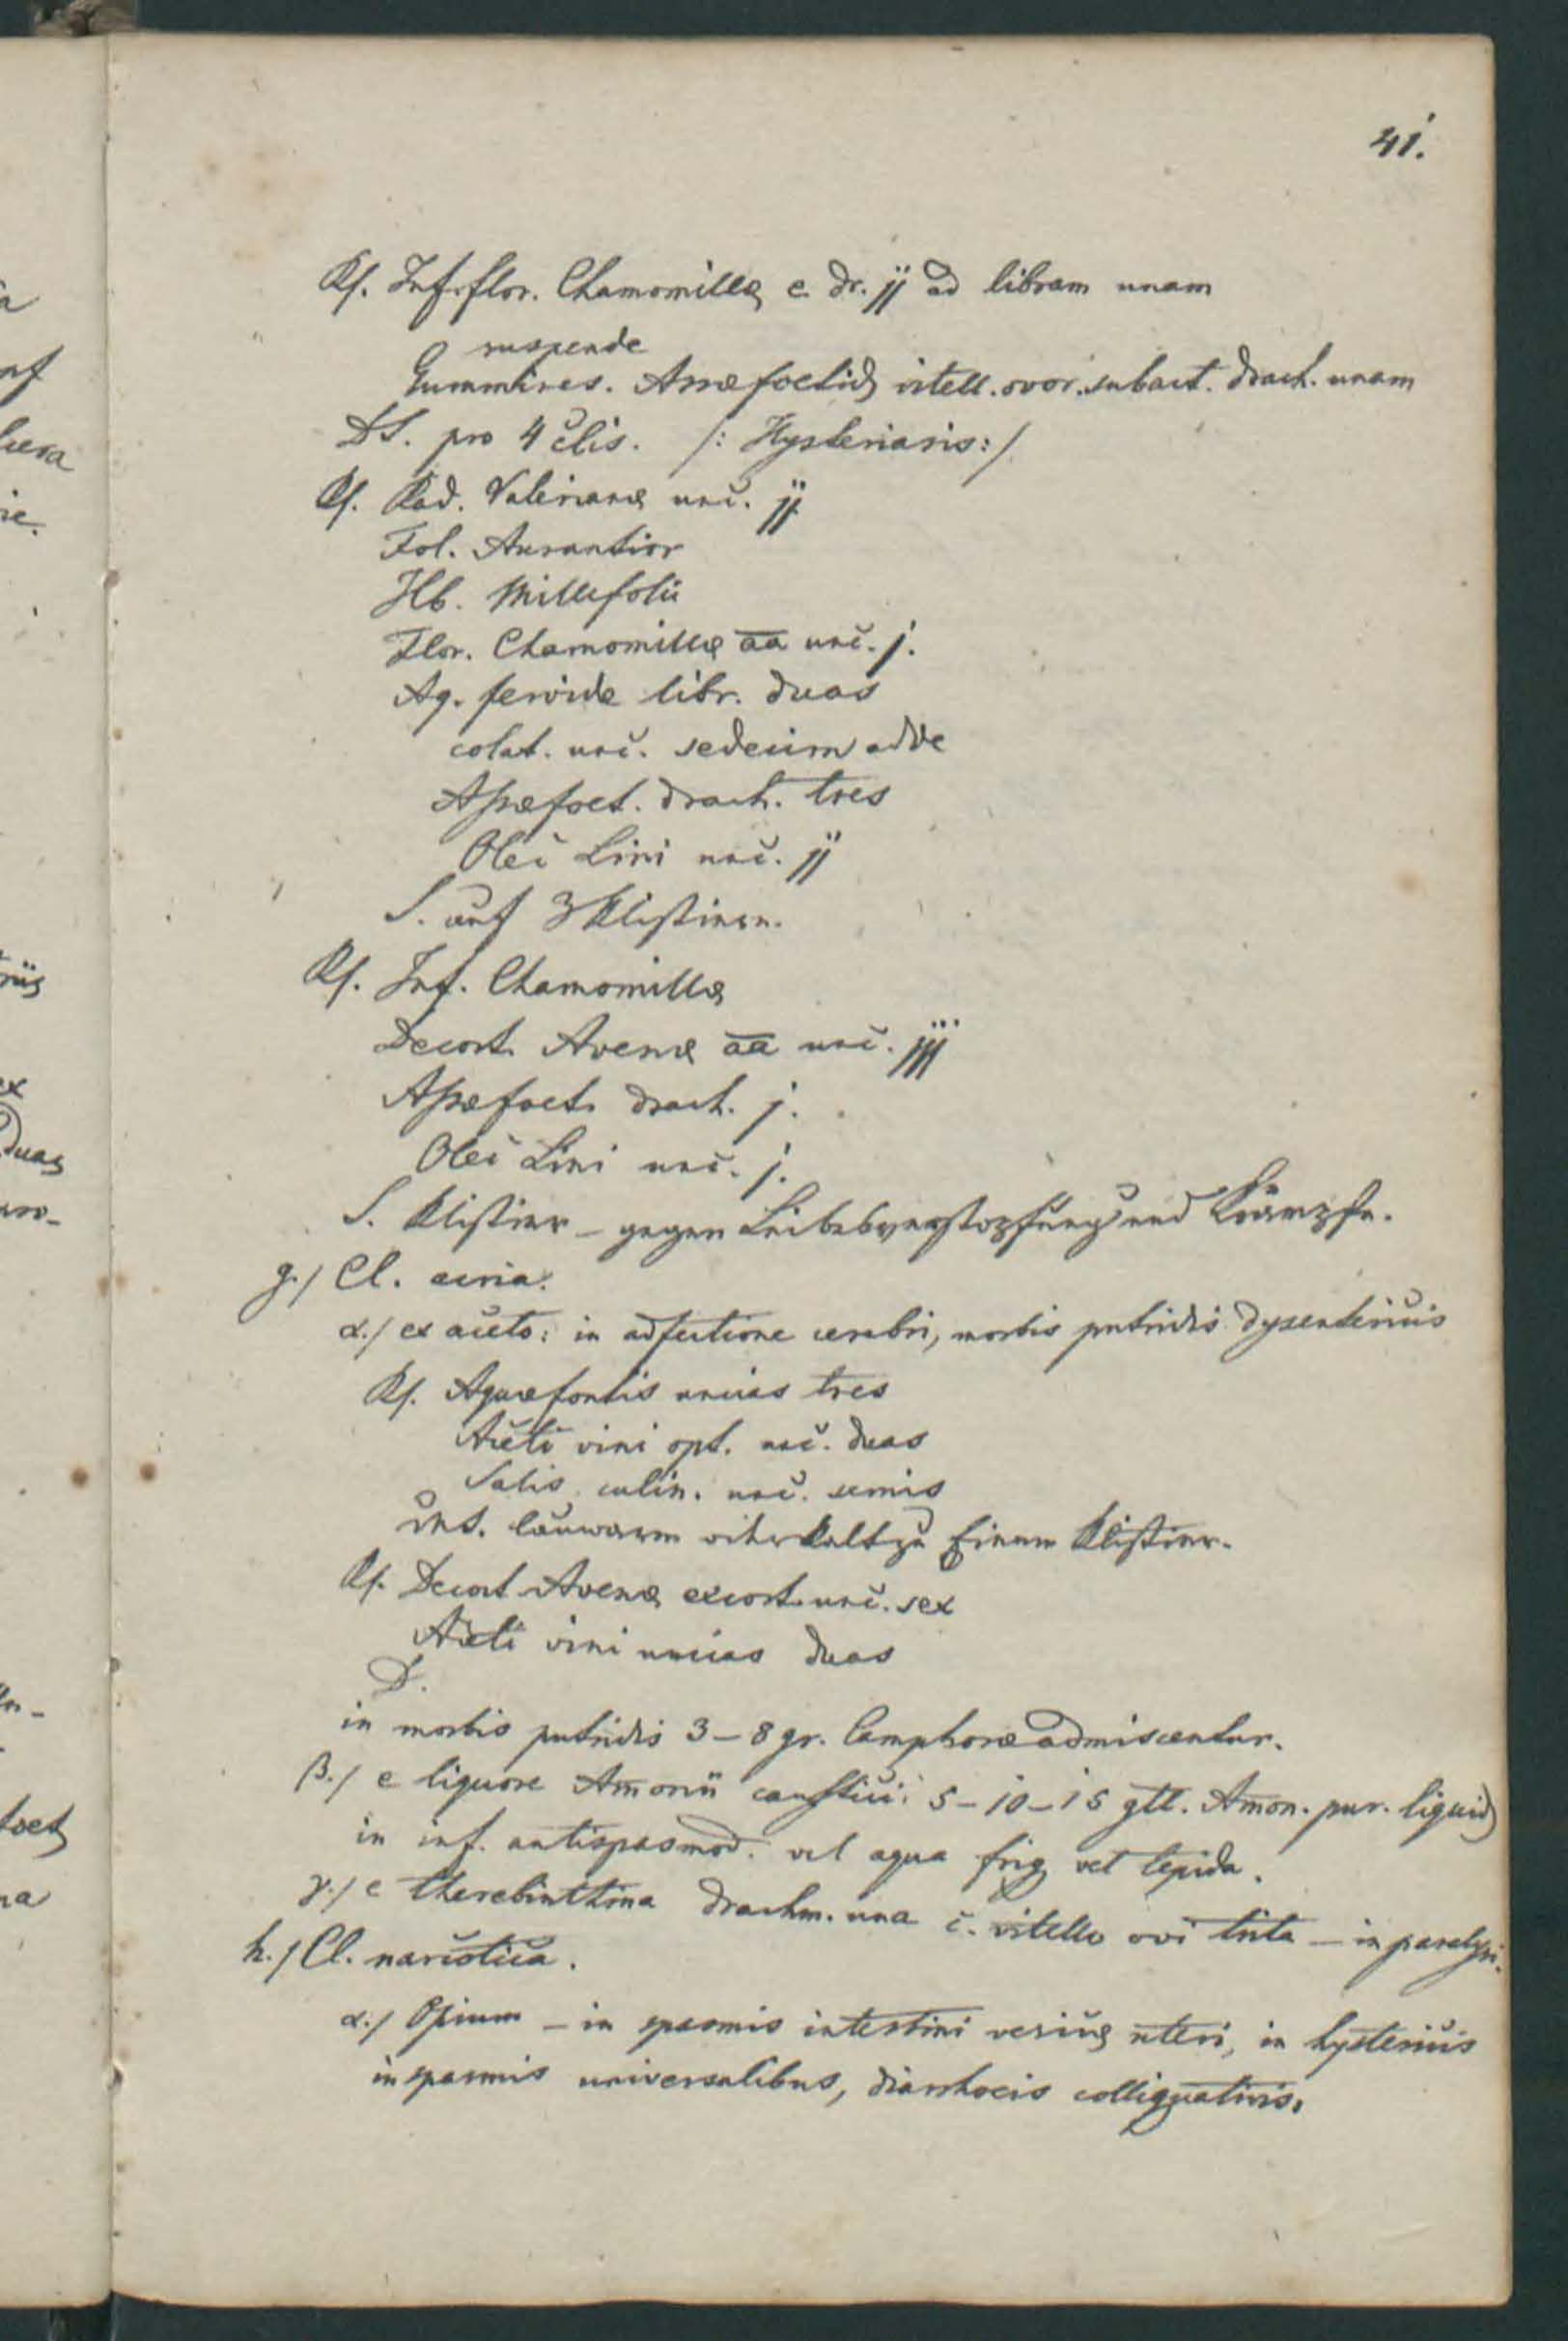 41.
Rf. Inf. flor. Chamomillae e dr. jj ad libram unam
suspende
Gummires. Assae foetid vitell. ovor. subact. drach. unam
DS. pro 4 clis. /: Hysteriasis:/
Rf. Rad. Valerianae unc. jj
Fol. Aurantior
Hb. Millefolii
Flor. Chamomillae aa unc. j.
Aq. fervide libr. duas
colat. unc. sedecim adde
Assaefoet. drach. tres
Olei Lini unc. jj
S. auf 3 Klistiere.
Rf. Inf. Chamomillae
Decoct. Avenae aa unc. jjj
Assaefoet. drach. j.
Olei Lini unc. j.
S. Klistier – gegen Leibesverstopfung und Krämpfe.
g./ Cl. acria.
α./ ex aceto: in adfectione cerebri, morbis putridis dysentericis
Rf. Aquae fontis uncias tres
Aceti vini opt. unc. duas
Salis culin. unc. semis
DS. lauwarm oder kalt zu Einem Klistier.
Rf. Decoct Avenae excort. unc. sex
Aceti vini uncias duas
D.
in morbis putridis 3–8 gr. Camphorae admiscentur.
β./ e liquore Amonii caustici: 5–10–15 gtt. Amon. pur. liquid
in inf. antispasmod. vel aqua frig vel tepida.
γ./ e therebinthina drachm. una c. vitello ovi trita – in paralysi.
h./ Cl. narcotica.
α./ Opium – in spasmis intestini vesicae uteri, in hystericis
in spasmis universalibus, diarrhoeis colliquativis.